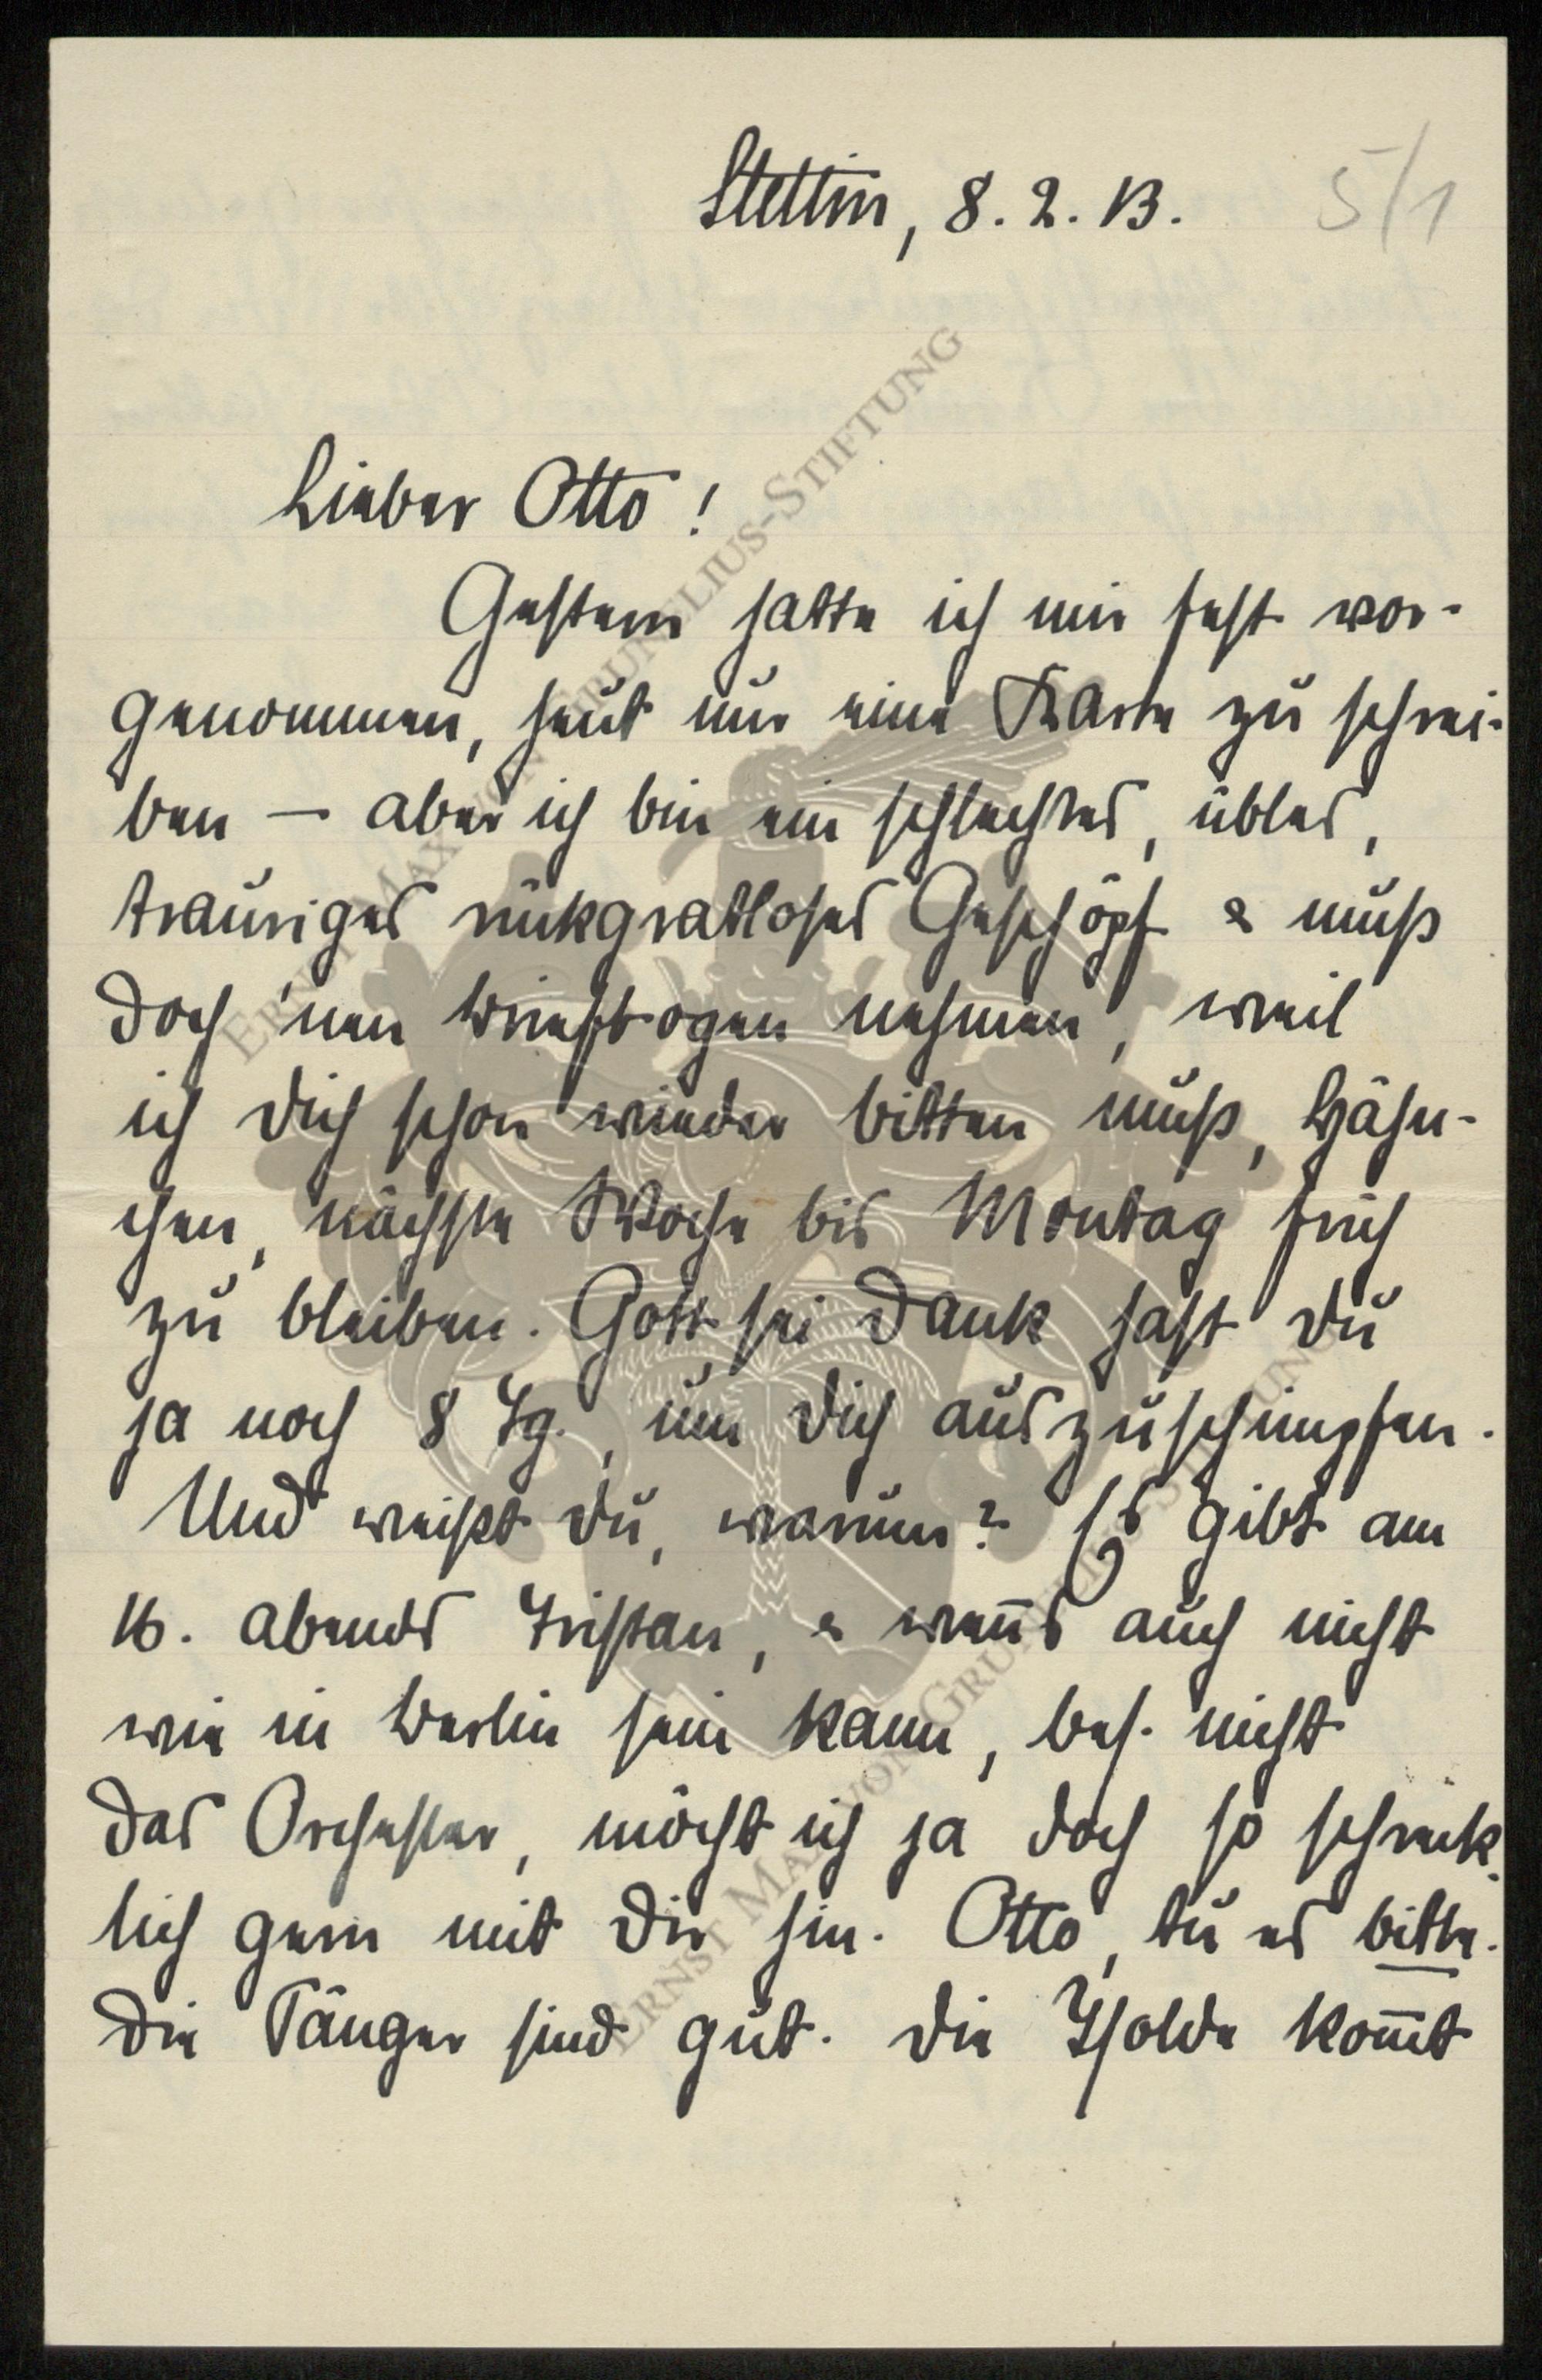 Stettin, 8. 2. 13.
5/1
Lieber Otto!
Gestern hatte ich mir fest vor-
genommen, heut nur eine Karte zu schrei-
ben – aber ich bin ein schlechtes, übles,
trauriges rükgratloses Geschöpf & muß
doch 'nen Briefbogen nehmen, weil
ich Dich schon wieder bitten muß, Hähn-
chen, nächste Woche bis Montag früh
zu bleiben. Gott sei Dank hast Du
ja noch 8 Tg., um Dich auszuschimpfen.
Und weißt Du, warum? Es gibt am
16. abends Tristan, & wen̄s auch nicht
wie in Berlin sein kann, bes. nicht
das Orchester, möcht ich ja doch so schrek-
lich gern mit Dir hin. Otto, tu es bitte.
Die Sänger sind gut. Die Isolde kom̄t
ERNST MAX VON GRUNELIUS-STIFTUNG
ERNST MAX VON GRUNELIUS-STIFTUNG